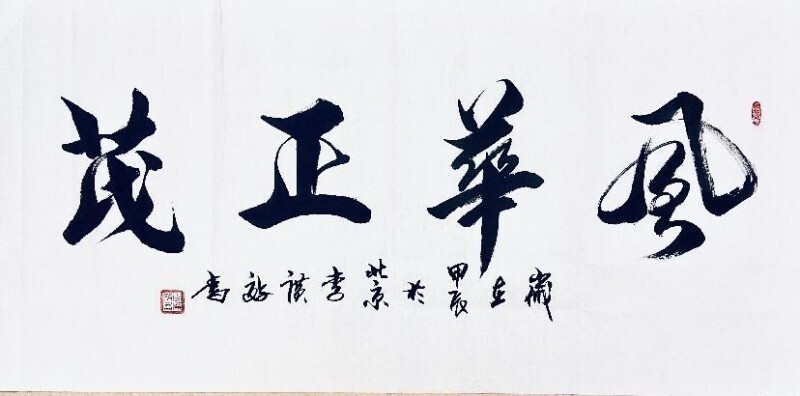 風華正茂
歲在甲辰於北京李謀敬書